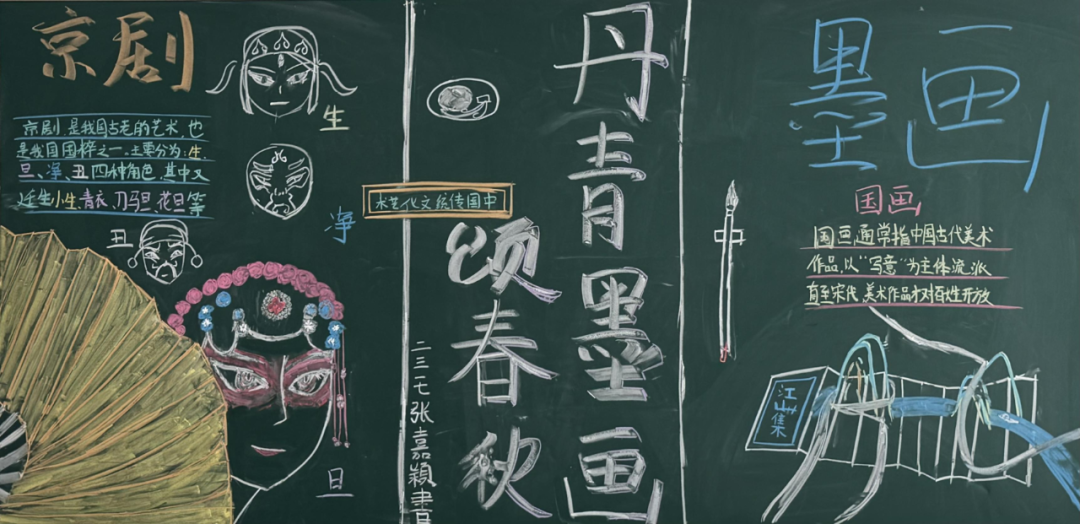 京剧
京剧,是我国古老的艺术,也
是我国国粹之一.主要分为:生、
旦、净、丑四种角色,其中又
小生、青衣、刀马旦、花旦等
生
净
丑
旦
术艺化文统传国中
丹青墨画
颂春秋
二三七张嘉穎書
墨画
国画
国画通常指中国古代美术
作品,以“写意”为主体流派
直至宋代,美术作品才对百姓开放
江山集